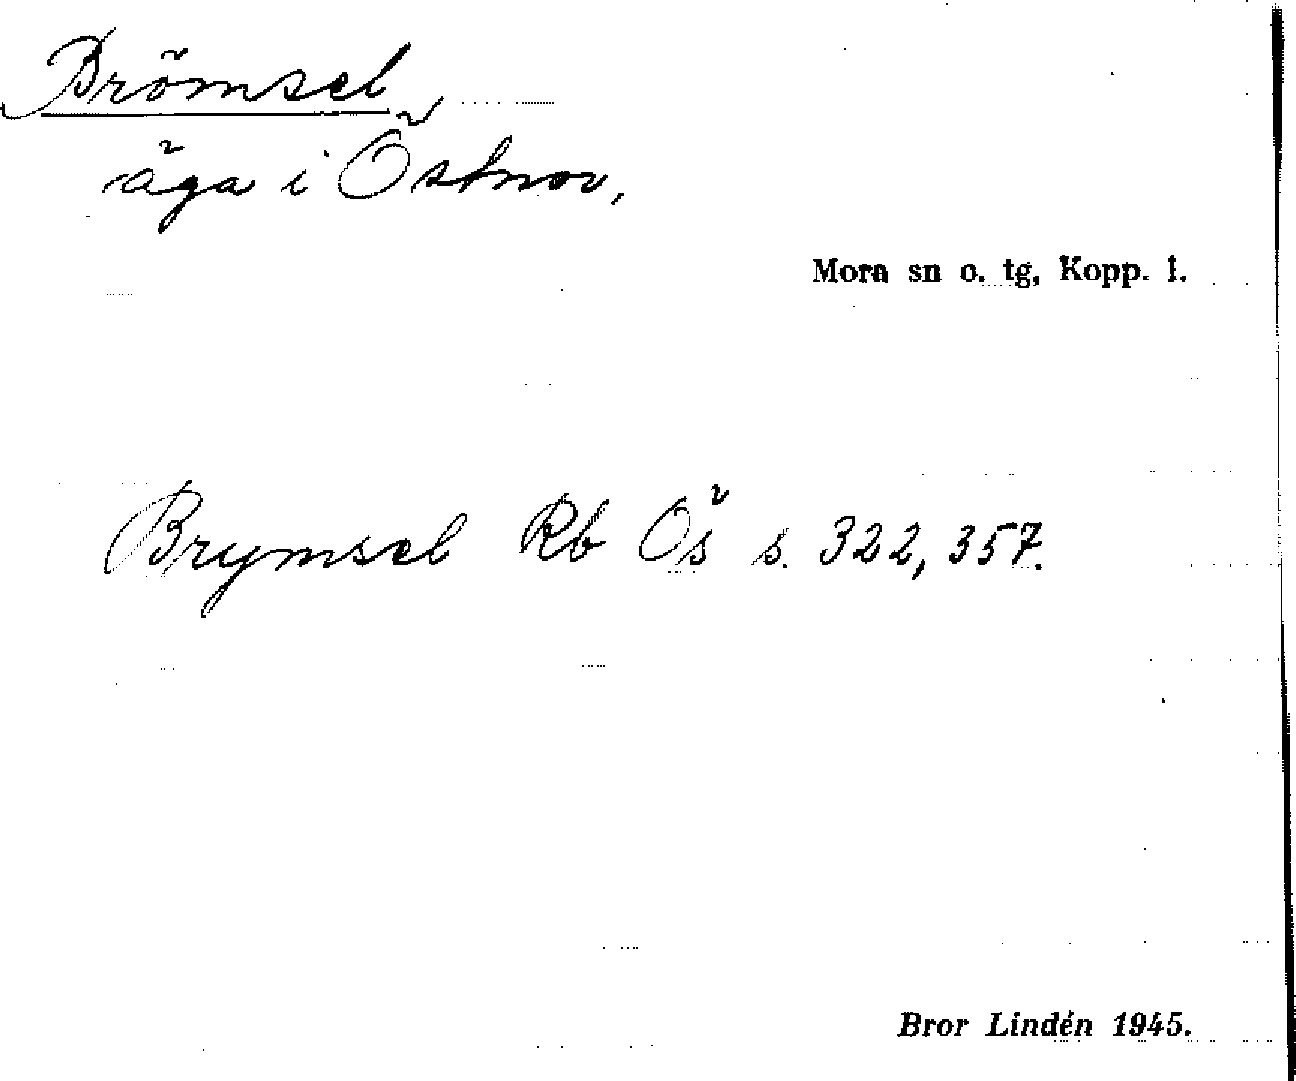 Brömsel
äga i Östnor,
Mora sn o. tg, Kopp. l.
Brymsel Rb Ös s. 322, 357.
Bror Lindén 1945.